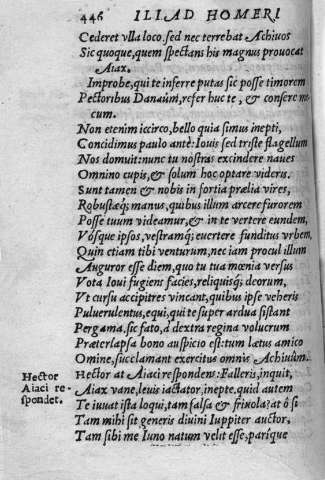 446 ILIAD HOMERI
Cederet vlla loco. sed nec terrebat Achiuos
Sic quoque, quem spectans his magnus prouocat
Aiax.
Improbe, qui te inferre putas sic posse timorem
Pectoribus Danaûm, refer huc te, & confere me-
cum.
Non etenim iccirco, bello quia simus inepti,
Concidimus paulo antè: Iouis sed triste flagellum
Nos domuit: nunc tu nostras excindere naues
Omnino cupis, & solum hoc optare videris.
Sunt tamen & nobis in fortia prælia vires,
Robustæq; manus, quibus illum arcere furorem
Posse tuum videamur, & in te vertere eundem,
Vósque ipsos, vestramq; euertere funditus vrbem,
Quin etiam tibi venturum, nec iam procul illum
Auguror esse diem, quo tu tua mœnia versus
Vota Ioui fugiens facies, reliquisq; deorum,
Vt cursu accipitres vincant, quibus ipse veheris
Puluerulentus, equi, qui te super ardua sistant
Pergama. sic fato, à dextra regina volucrum
Præterlapsa bono auspicio est: tum lætus amico
Omine, succlamant exercitus omnis Achiuûm.
Hector
Aiaci re-
spondet.
Hector at Aiaci respondens: Falleris, inquit,
Aiax vane, leuis iactator, inepte, quid autem
Te iuuat ista loqui, tam falsa & friuola? at ô si
Tam mihi sit generis diuini Iuppiter auctor,
Tam sibi me Iuno natum velit esse, paríque